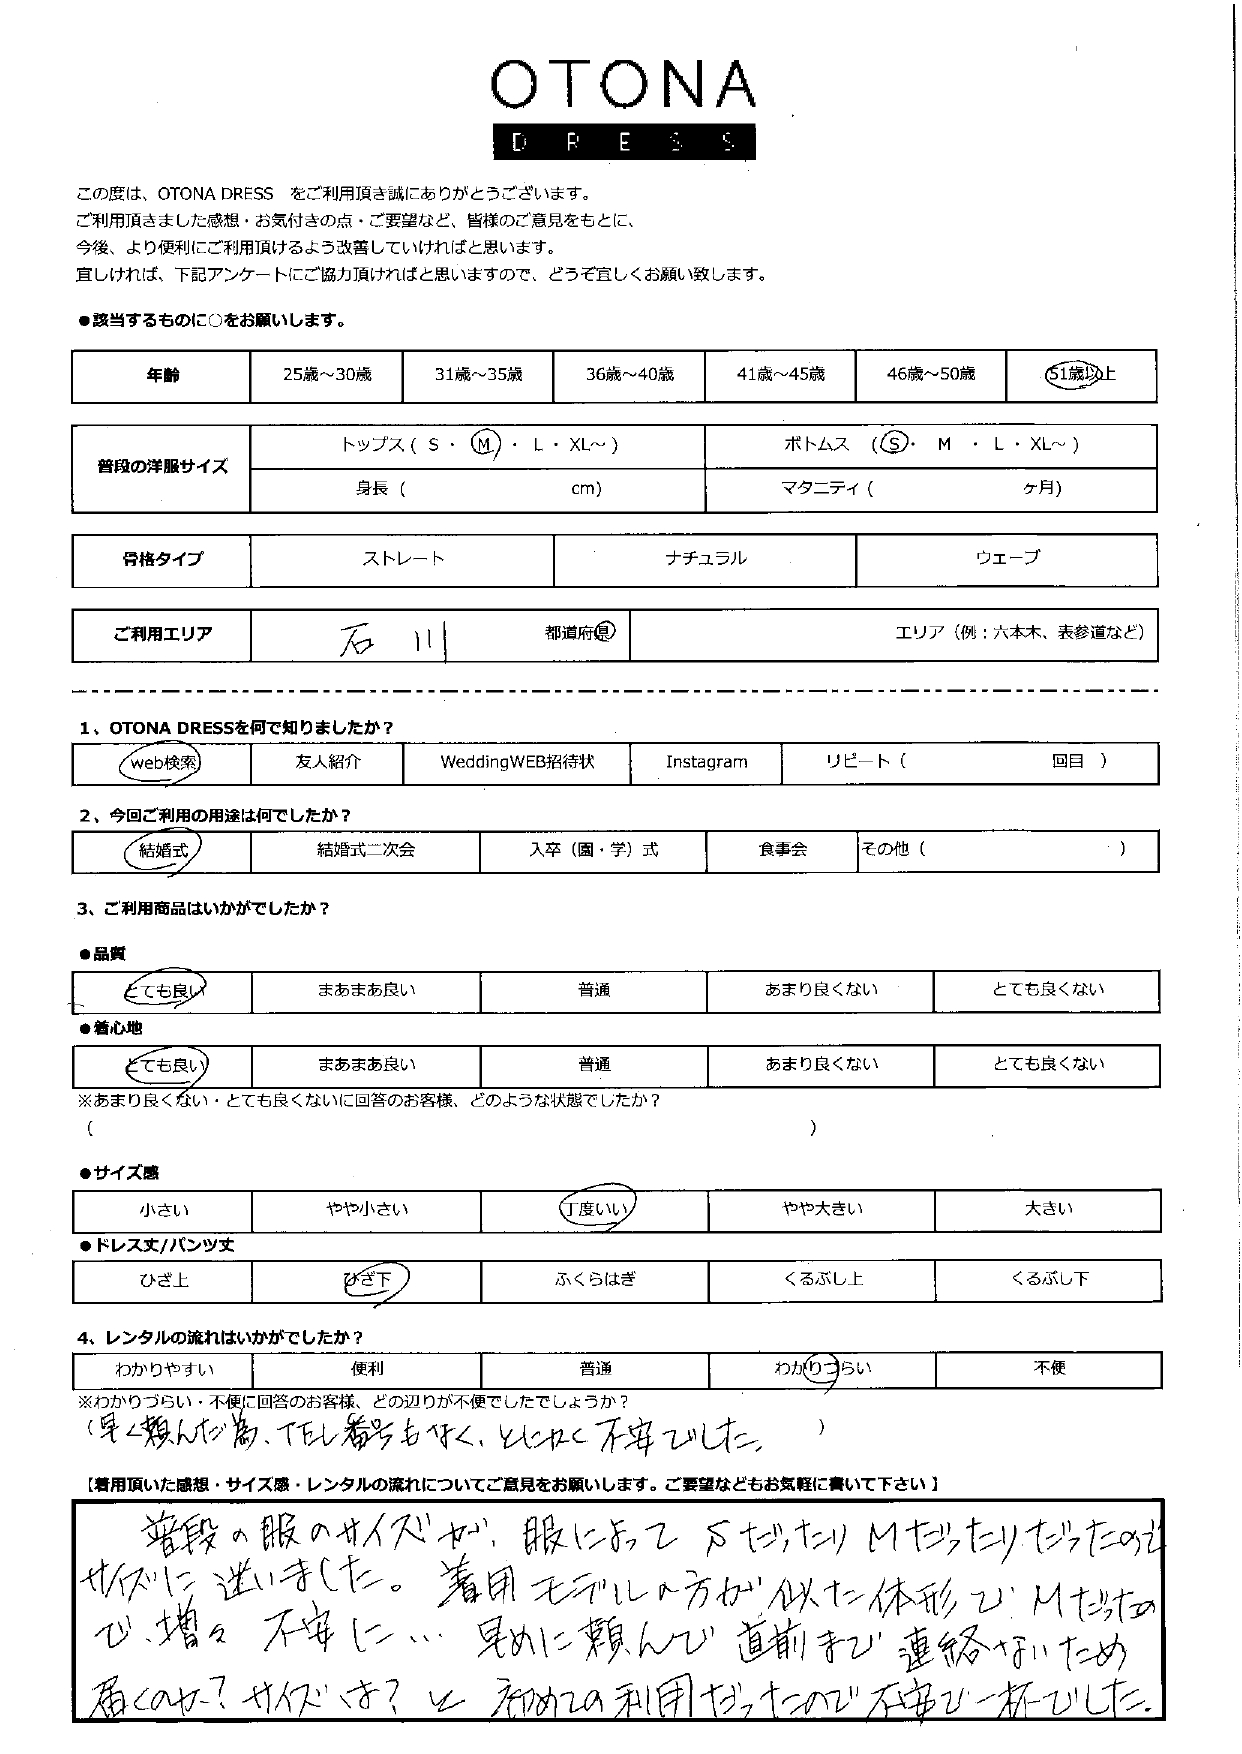 OTONA
DRESS
この度は、OTONA DRESS をご利用頂き誠にありがとうございます。
ご利用頂きました感想・お気付きの点・ご要望など、皆様のご意見をもとに、
今後、より便利にご利用頂けるよう改善していければと思います。
宜しければ、下記アンケートにご協力頂ければと思いますので、どうぞ宜しくお願い致します。
●該当するものに○をお願いします。
年齢 25歳～30歳 31歳～35歳 36歳～40歳 41歳～45歳 46歳～50歳 51歳以上
普段の洋服サイズ トップス ( S ・ M ・ L ・ XL～ ) ボトムス ( S ・ M ・ L ・ XL～ )
身長 ( cm) マタニティ ( ヶ月)
骨格タイプ ストレート ナチュラル ウェーブ
ご利用エリア 石川 都道府県 エリア（例：六本木、表参道など）
1、OTONA DRESSを何で知りましたか？
web検索 友人紹介 WeddingWEB招待状 Instagram リピート ( 回目 )
2、今回ご利用の用途は何でしたか？
結婚式 結婚式二次会 入卒（園・学）式 食事会 その他 ( )
3、ご利用商品はいかがでしたか？
●品質
とても良い まあまあ良い 普通 あまり良くない とても良くない
●着心地
とても良い まあまあ良い 普通 あまり良くない とても良くない
※あまり良くない・とても良くないに回答のお客様、どのような状態でしたか？
( )
●サイズ感
小さい やや小さい 丁度いい やや大きい 大きい
●ドレス丈/パンツ丈
ひざ上 ひざ下 ふくらはぎ くるぶし上 くるぶし下
4、レンタルの流れはいかがでしたか？
わかりやすい 便利 普通 わかりづらい 不便
※わかりづらい・不便に回答のお客様、どの辺りが不便でしたでしょうか？
(早く頼んだ為、TEL番号もなく、とにかく不安でした。 )
【着用頂いた感想・サイズ感・レンタルの流れについてご意見をお願いします。ご要望などもお気軽に書いて下さい】
普段の服のサイズが、服によって SだったりMだったりだったので
サイズに迷いました。着用モデルの方が似た体形で Mだったの
で、増々 不安に… 早めに頼んで 直前まで 連絡ないため
届くのか？サイズは？と 初めての利用だったので不安で一杯でした。